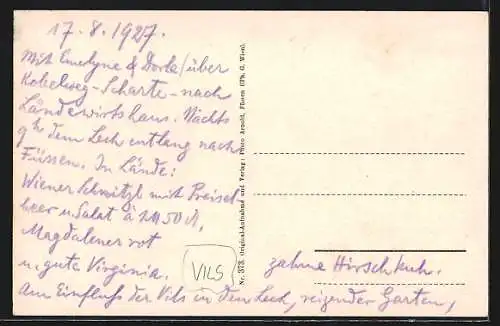 17.8.1927.
Mit Emelyne & Dorle/über
Kobelweg-Scharte-nach
Ländewirtshaus. Nachts
9h dem Lech entlang nach
Füssen. In Lände:
Wiener Schnitzl mit Preisel
beer u. Salat à 2 M 50 ₰,
Magdalener rot
u. gute Virginia.
VILS
zahme Hirschkuh.
Am Einfluß der Vils in den Lech, reizender Garten,
Nr. 373. Original-Aufnahme und Verlag: Photo Arnold, Füssen (Ph. G. Wien).